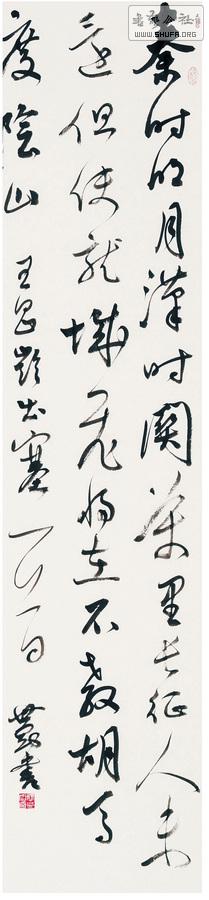 秦时明月汉时关万里长征人未
还但使龙城飞将在不教胡马
度阴山 王昌龄出塞 一首
世懿书
WWW.SHUFA.ORG